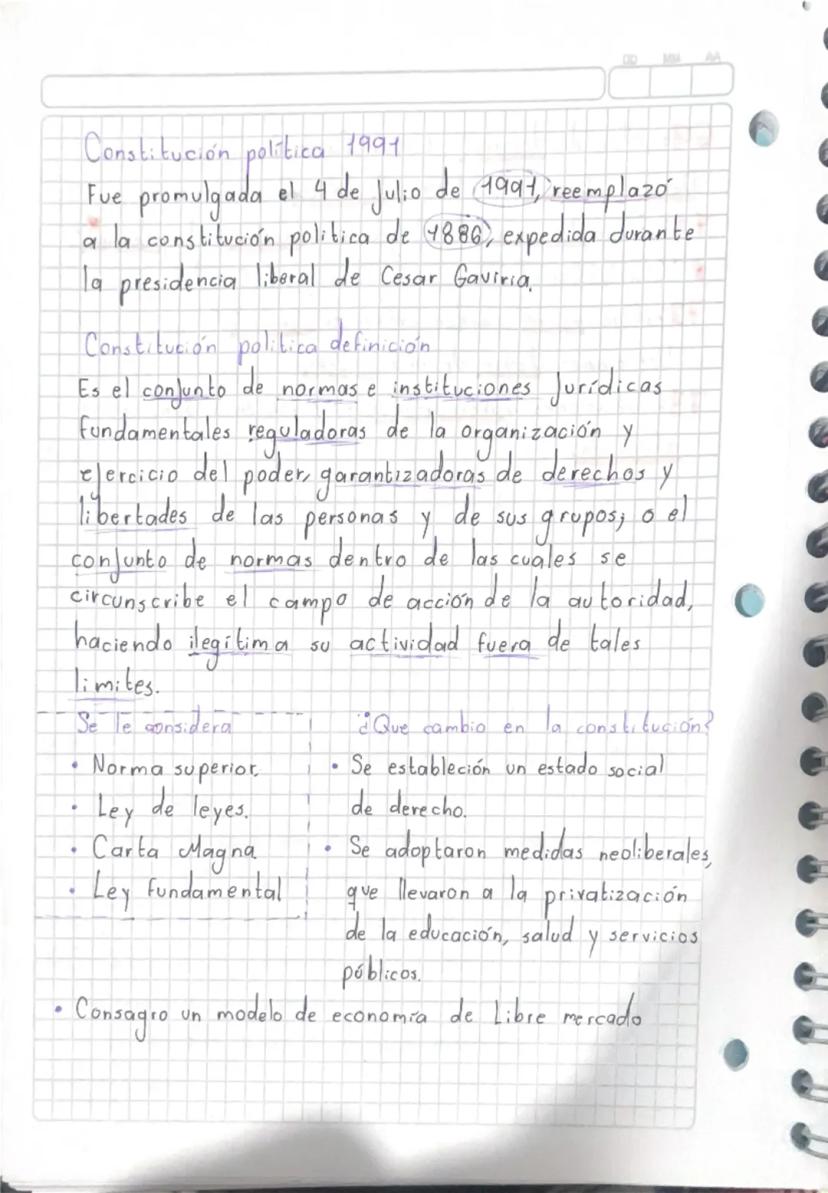 DD MM AA
Constitución política 1991
Fue promulgada el 4 de Julio de 1991, reemplazó
a la constitución politica de 1886, expedida durante
la presidencia liberal de Cesar Gaviria.
Constitución politica definición
Es el conjunto de normas e instituciones Jurídicas
fundamentales reguladoras de la organización y
ejercicio del poder, garantizadoras de derechos y
libertades de las personas y de sus grupos; o el
conjunto de normas dentro de las cuales se
circunscribe el campo de acción de la autoridad,
haciendo ilegítima su actividad fuera de tales
limites.
Se le considera
• Norma superior.
• Ley de leyes.
• Carta Magna
• Ley fundamental
¿Que cambio en la constitución?
• Se estableción un estado social
de derecho.
• Se adoptaron medidas neoliberales,
que llevaron a la privatización
de la educación, salud y servicios
públicos.
• Consagro un modelo de economía de Libre mercado